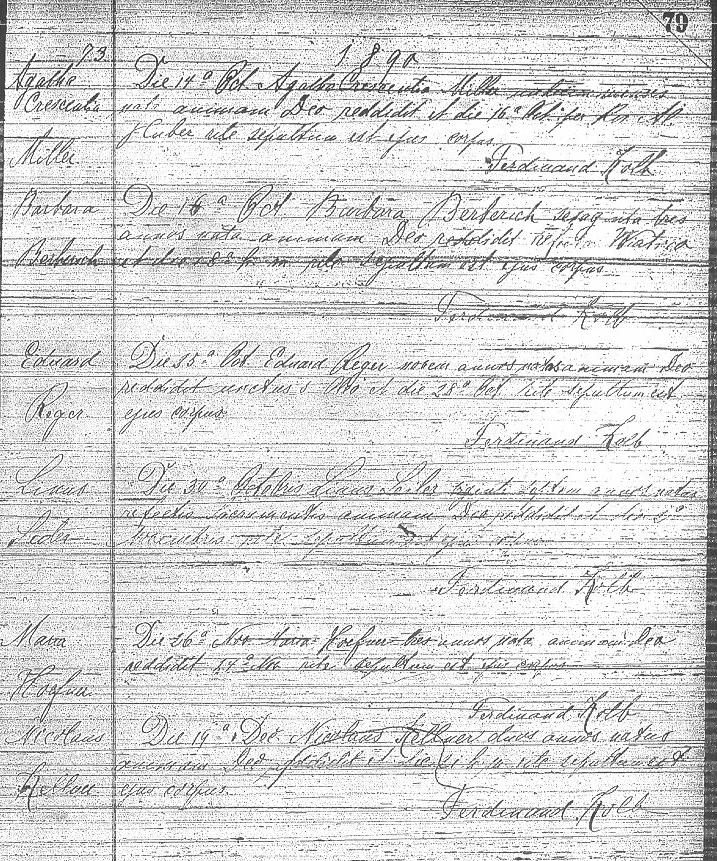 79
73
1890
Agatha
Crescentia
Miller
Die 14ª Oct Agatha Crescentia Miller
nata animam Deo reddidit et die 16ª Oct per Rev
Huber rite sepultum est ejus corpus
Ferdinand Kolb
Barbara
Berberich
Die 16ª Oct Barbara Berberich tres
annos nata animam Deo reddidit refecta Viatico
et die 18ª h. m. rite sepultum est ejus corpus
Ferdinand Kolb
Eduard
Reger
Die 25ª Oct Eduard Reger novem annos natus animam Deo
reddidit et die 28ª Oct rite sepultum est
ejus corpus
Ferdinand Kolb
Linus
Die 30ª Octobris Linus septem annos natus
refectus Sacramentis animam Deo reddidit et die
rite sepultum est ejus
Ferdinand Kolb
Maria
Hoefner
Die 26ª Nov Maria Hoefner tres annos nata animam Deo
reddidit rite sepultum est ejus corpus
Ferdinand Kolb
Nicolaus
Kellner
Die 19ª Dec Nicolaus Kellner duos annos natus
animam Deo reddidit et die h. m. rite sepultum est
ejus corpus.
Ferdinand Kolb